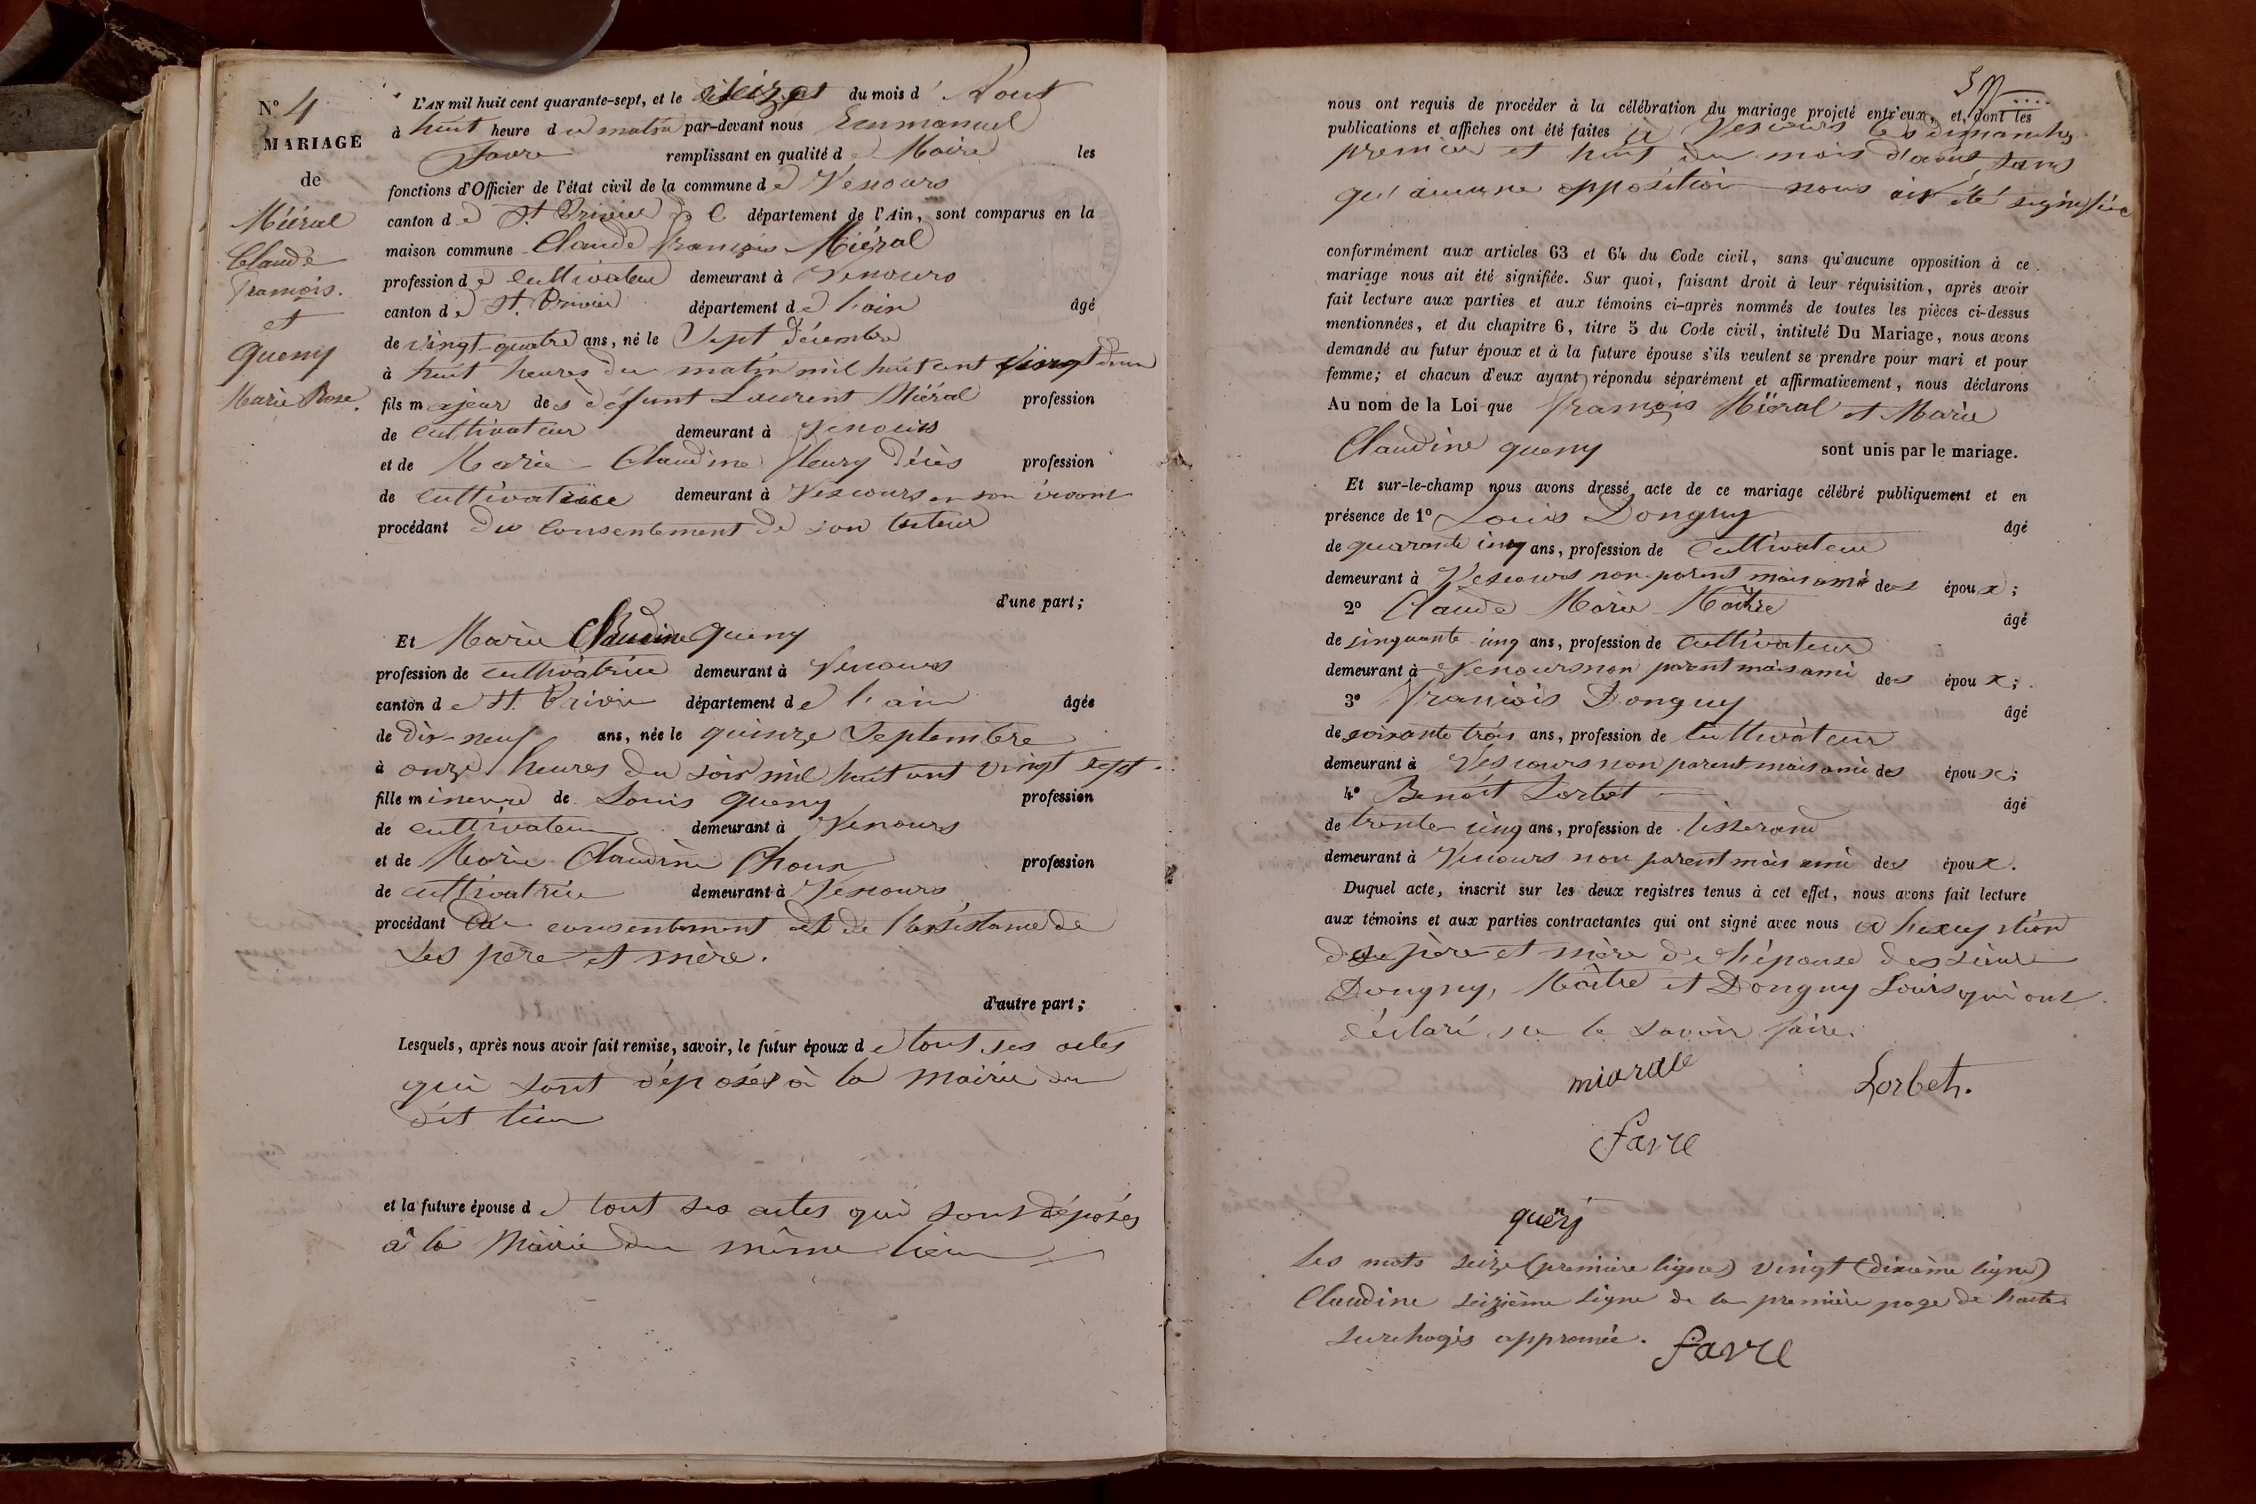 N° 4
MARIAGE
de
Miéral
Claude
François.
et
Queny
Marie Rose.
L'AN mil huit cent quarante-sept, et le seize du mois d'Aout
à huit heure du matin par-devant nous Emmanuel
Favre remplissant en qualité de Maire les
fonctions d'Officier de l'état civil de la commune de Vescours
canton de St. Trivier département de l'Ain, sont comparus en la
maison commune Claude François Miéral
profession de cultivateur demeurant à Vescours
canton de St. Trivier département de l'ain âgé
de vingt-quatre ans, né le Sept décembre
à huit heures du matin mil huit cent vingt deux
fils majeur des défunt Laurent Miéral profession
de cultivateur demeurant à Vescours
et de Marie Claudine Fleury décés profession
de cultivatrice demeurant à Vescours en son vivant
procédant du consentement de son tuteur
d'une part;
Et Marie Claudine Queny
profession de cultivatrice demeurant à Vescours
canton de St. Trivier département de l'ain âgée
de dix-neuf ans, née le quinze Septembre
à onze heures du soir mil huit cent vingt sept.
fille mineure de Louis Queny profession
de cultivateur demeurant à Vescours
et de Marie Claudine Choux profession
de cultivatrice demeurant à Vescours
procédant du consentement et de l'assistance de
ses père et mère.
d'autre part;
Lesquels, après nous avoir fait remise, savoir, le futur époux de tout ses actes
qui sont déposés à la Mairie du
dit lieu
et la future épouse de tout ses actes qui sont déposés
à la Mairie du même lieu
nous ont requis de procéder à la célébration du mariage projeté entr'eux, et dont les
publications et affiches ont été faites à Vescours les dimanches
premier et huit du mois d'aout, sans
qu'aucune opposition nous ait été signifiée
conformément aux articles 63 et 64 du Code civil, sans qu'aucune opposition à ce
mariage nous ait été signifiée. Sur quoi, faisant droit à leur réquisition, après avoir
fait lecture aux parties et aux témoins ci-après nommés de toutes les pièces ci-dessus
mentionnées, et du chapitre 6, titre 5 du Code civil, intitulé Du Mariage, nous avons
demandé au futur époux et à la future épouse s'ils veulent se prendre pour mari et pour
femme; et chacun d'eux ayant répondu séparément et affirmativement, nous déclarons
Au nom de la Loi que François Miéral et Marie
Claudine queny sont unis par le mariage.
Et sur-le-champ nous avons dressé acte de ce mariage célébré publiquement et en
présence de 1° Louis Donguy âgé
de quarante cinq ans, profession de cultivateur
demeurant à Vescours non parent mais ami des époux;
2° Claude Marie Maître âgé
de cinquante cinq ans, profession de cultivateur
demeurant à Vescours non parent mais ami des époux;
3° François Donguy âgé
de soixante trois ans, profession de cultivateur
demeurant à Vescours non parent mais ami des époux;
4° Benoît Lorbet âgé
de trente cinq ans, profession de tisserand
demeurant à Vescours non parent mais ami des époux.
Duquel acte, inscrit sur les deux registres tenus à cet effet, nous avons fait lecture
aux témoins et aux parties contractantes qui ont signé avec nous a l'exception
des père et mère de l'épouse des sieurs
Donguy, Maître et Donguy Louis qui ont
déclaré ne le savoir faire.
miarale Lorbet.
favre
queny
Les mots seize (première ligne) vingt (dixième ligne)
Claudine seizième ligne de la première page de l'acte
surchagés approuvée. favre